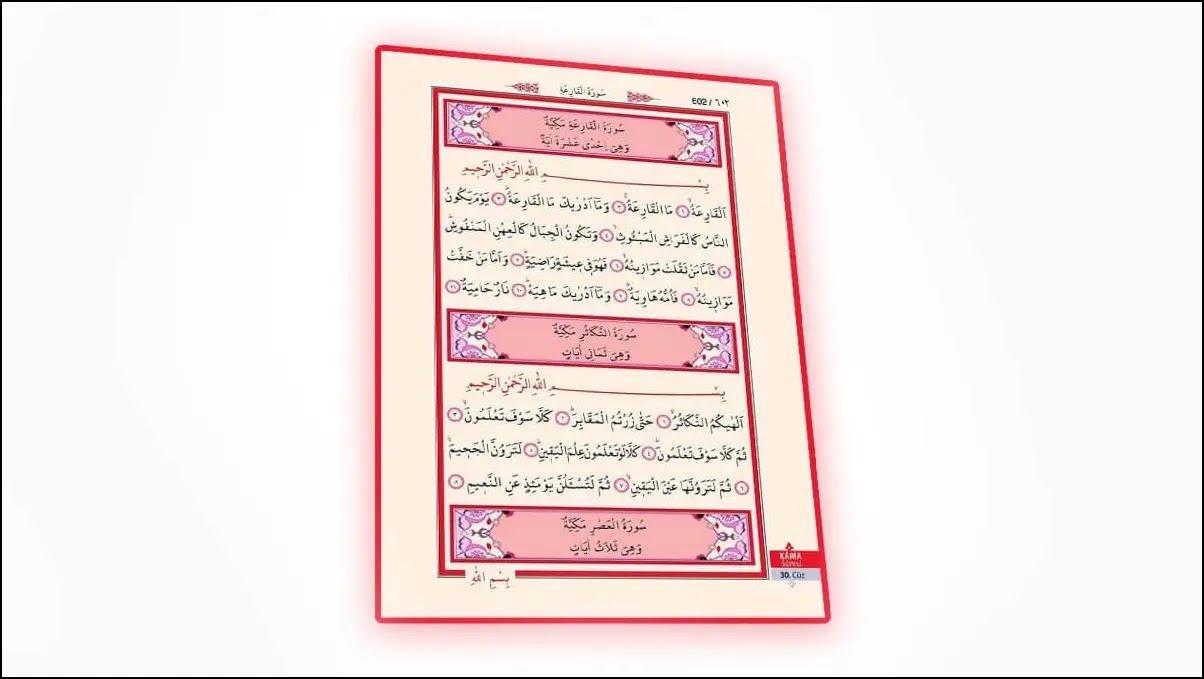 سُورَةُ الْقَارِعَةِ
602 / ٦٠٢
سُورَةُ الْقَارِعَةِ مَكِّيَّةٌ
وَهِيَ اِحْدٰى عَشْرَةَ اٰيَةً
بِسْمِ اللّٰهِ الرَّحْمٰنِ الرَّحٖيمِ
اَلْقَارِعَةُۙ ١ مَا الْقَارِعَةُۚ ٢ وَمَٓا اَدْرٰيكَ مَا الْقَارِعَةُؕ ٣ يَوْمَ يَكُونُ
النَّاسُ كَالْفَرَاشِ الْمَبْثُوثِۙ ٤ وَتَكُونُ الْجِبَالُ كَالْعِهْنِ الْمَنْفُوشِؕ
٥ فَاَمَّا مَنْ ثَقُلَتْ مَوَازٖينُهُۙ ٦ فَهُوَ فٖي عٖيشَةٍ رَاضِيَةٍؕ ٧ وَاَمَّا مَنْ خَفَّتْ
مَوَازٖينُهُۙ ٨ فَاُمُّهُ هَاوِيَةٌؕ ٩ وَمَٓا اَدْرٰيكَ مَا هِيَهْؕ ١٠ نَارٌ حَامِيَةٌ ١١
سُورَةُ التَّكَاثُرِ مَكِّيَّةٌ
وَهِيَ ثَمَانِي اٰيَاتٍ
بِسْمِ اللّٰهِ الرَّحْمٰنِ الرَّحٖيمِ
اَلْهٰيكُمُ التَّكَاثُرُۙ ١ حَتّٰى زُرْتُمُ الْمَقَابِرَؕ ٢ كَلَّا سَوْفَ تَعْلَمُونَۙ ٣
ثُمَّ كَلَّا سَوْفَ تَعْلَمُونَؕ ٤ كَلَّا لَوْ تَعْلَمُونَ عِلْمَ الْيَقٖينِؕ ٥ لَتَرَوُنَّ الْجَحٖيمَۙ
٦ ثُمَّ لَتَرَوُنَّهَا عَيْنَ الْيَقٖينِۙ ٧ ثُمَّ لَتُسْـَٔلُنَّ يَوْمَئِذٍ عَنِ النَّعٖيمِ ٨
سُورَةُ الْعَصْرِ مَكِّيَّةٌ
وَهِيَ ثَلَاثُ اٰيَاتٍ
بِسْمِ اللّٰهِ
KÂRİA
Sûresi
30. Cüz